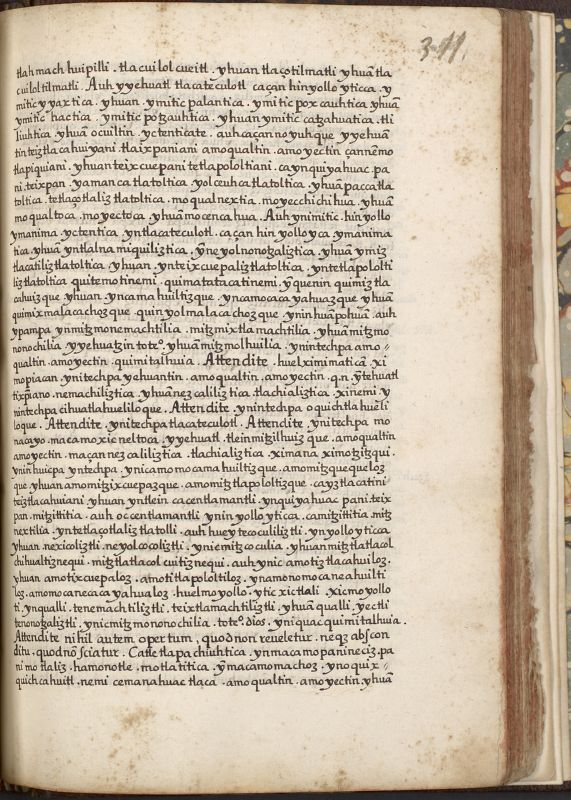 341.
tlahmach huipilli . tlacuilolcueitl . yhuan tlaçotilmatli yhuã tla
cuiloltilmatli . Auh yyehuatl tlacateculotl caçan hin yollo yticca . y
mitic yyaxtica . yhuan . ymitic palantica . ymitic poxcauhtica yhuã
ymitic hactica . ymitic potzauhtica . yhuan ymitic catzahuatica . tli
liuhtica yhuã ocuiltin . yctenticate . auh caçan no yuhque yyehuã
tin teiztlacahuiyani . tlaixpaniani amo qualtin . amo yectin çannemo
tlapiquiani . yhuan teixcuepani tetlapololtiani . ca ynquiyahuac . pa
ni . teixpan . yamanca tlatoltica yolceuhca tlatoltica . yhuã paccatla
toltica . tetlaçotlaliz tlatoltica . moqualnextia . moyecchichihua . yhuã
moqualtoca . moyectoca . yhuã mocencahua . Auh ynimitic . hin yollo
ymanima . yctentica . yn tlacateculotl . caçan hin yolloyca . ymanima
tica . yhuã yn tlalnamiquiliztica . yneyolnonotzaliztica . yhuã ymiz
tlacatiliztlatoltica . yhuan . yn teixcuepaliztlatoltica . yn tetlapololti
liztlatoltica quitemotinemi . quimatatacatinemi . yn quenin quimiztla
cahuizque yhuan . yncamahuiltizque . yncamocacayahuazque yhuã
quimixmalacachozque . quinyolmalacachozque . yninhuãpohuã . auh
yn pampa . yn mitzmonemachtilia . mitzmixtlamachtilia . yhuã mitzmo
nonochilia . yyehuatzin toteo . yhuã mitzmolhuilia . yn intechpa amo
qualtin . amo yectin . quimitalhuia . Attendite . huelximimati cã xi
mopiacan . yn itechpa yehuantin . amo qualtin . amo yectin . q.n ytehuatl
tixpiano . nemachiliztica . yhuã nezcaliliztica . tlachializtica . xinemi y
nintechpa cihuatlahueliloque . Attendite . yn intechpa oquichtlahueli
loque . Attendite . yn itechpa tlacateculotl . Attendite . yn itechpa mo
nacayo . macamo xicneltoca . yyehuatl . tlein mitzilhuizque . amo qualtin
amo yectin . maçan nezcaliliztica . tlachializtica . ximana ximotzitzqui .
ynin huicpa yntechpa . ynic amo mocamahuiltizque . amo mitzquequeloz
que yhuan amo mitzixcuepazque . amo mitztlapolozque . cayztlacatini
teiztlacahuiani . yhuan yntlein ca centlamantli . yn quiyahuac pani . teix
pan . mitzittitia . auh occentlamantli . yn in yollo yticca . camitzittitia . mitz
nextilia . yn tetlaçotlaliztlatolli . auh huey tecoculiliztli . yn yollo yticca
yhuan . nexicoliztli . neyolcocoliztli . ynic mitzcoculia . yhuan mitztlatlacol
chihualtiznequi . mitztlatlacolcuitiznequi . auh ynic amo tiztlacahuiloz .
yhuan amo tixcuepaloz . amo titlapololtiloz . ynamonomocaneahuilti
loz . amo mocanecacayahualoz . huelmoyollo . ytic xictlali . xicmoyollo
ti . yn qualli . tenemachtiliztli . teixtlamachtiliztli . yhuã qualli . yectli
tenonotzaliztli . ynic mitzmononochilia . toteo . dios . yniquac quimitalhuia .
Attendite nihil autem opertum , quod non reveletur . neqz abscon
ditum . quod non sciatur . Catle tlapachiuhtica . yn macamo panineciz . pa
nimotlaliz . hamonotle . motlatitica . yn macamo machoz . yn oquix
quich cahuitl . nemi cemanahuac tlaca . amo qualtin . amo yectin . yhuã